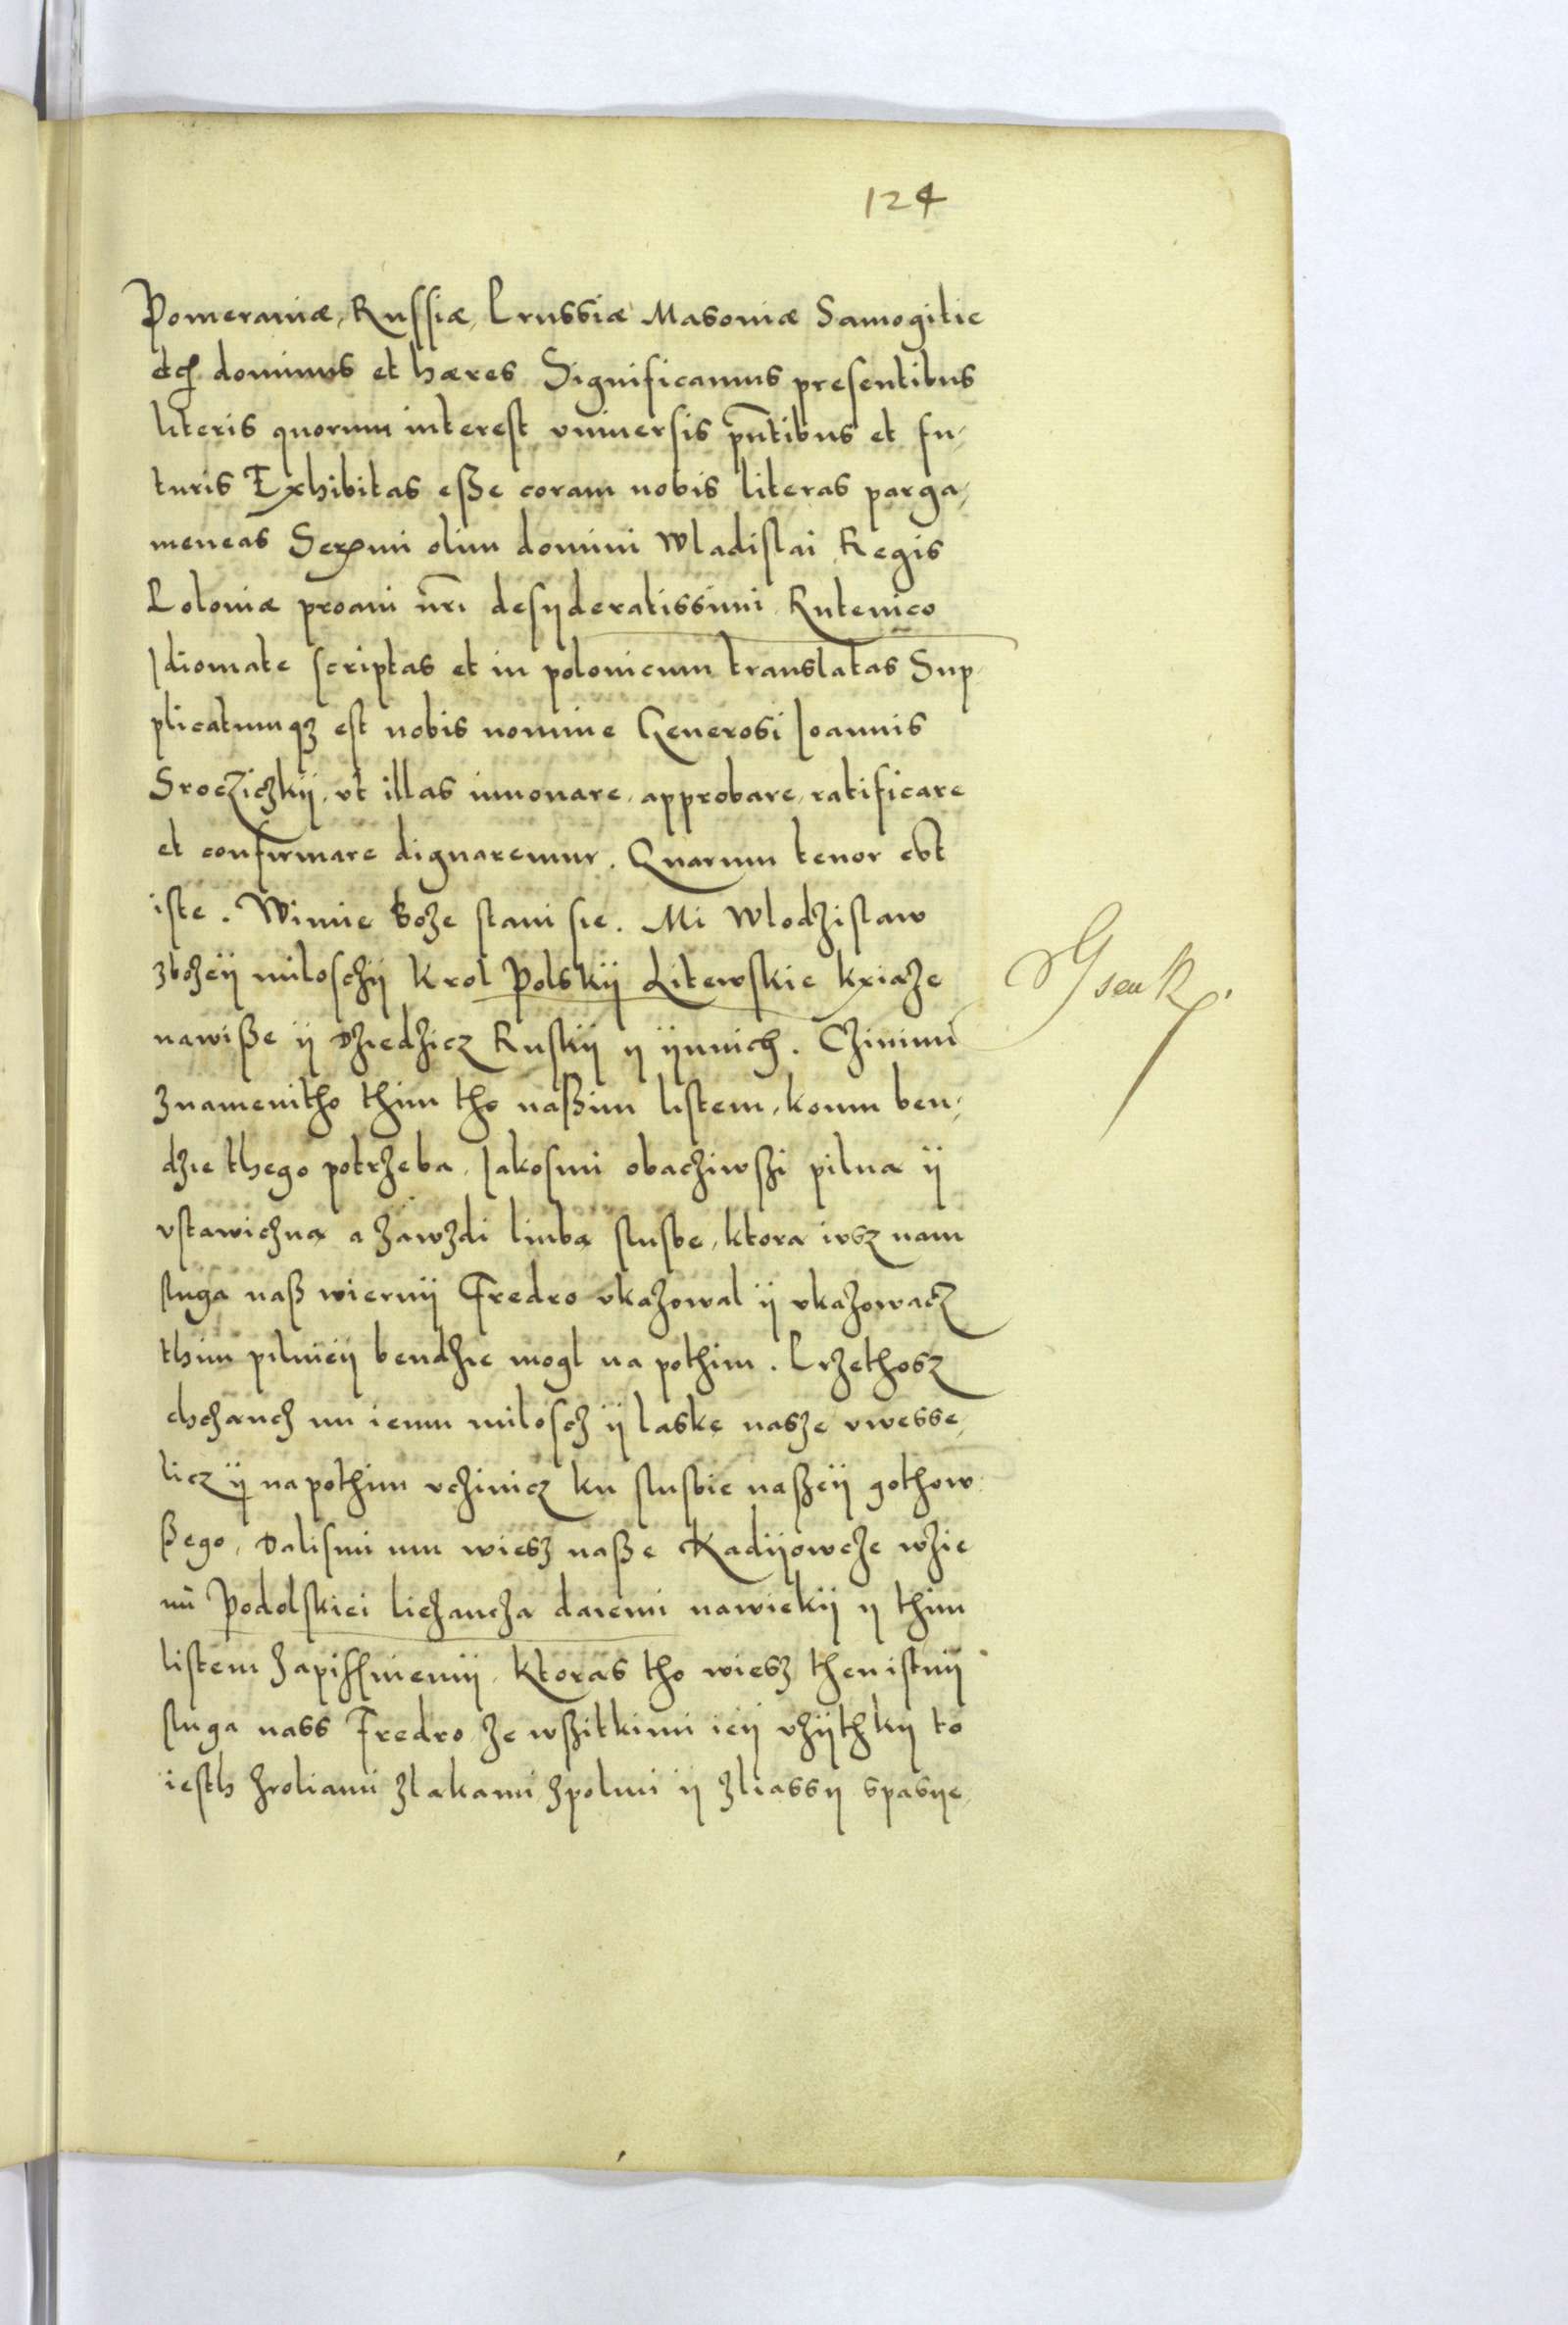 124
Pomeraniæ, Russiæ, Prussiæ Masoviæ Samogitie
etc dominus et hæres Significamus presentibus
literis quorum interest vniuersis pñtibus et fu,
turis Exhibitas esse coram nobis literas parga,
meneas Serenmi olim domini Wladislai Regis
Poloniæ proaui nri desyderatissimi Rutenico
Idiomate scriptas et in polonicum translatas Sup,
plicatumqz est nobis nomine Generosi Joannis
Srocziczkij, vt illas innouare, approbare, ratificare
et confirmare dignaremur. Quarum tenor est
iste. Wimie Boze stani sie. Mi Wlodzislaw
zbozeij miloschij Krol Polskij Litewskie kxiaze
nawisse ij Dziedzicz Ruskij y ijnnich. Czinimi
znamenitho thim tho nassim listem, komu ben,
dzie thego potrzeba, Jakosmi obacziwszi pilna ij
vstawiczna a zawzdi liuba sluzbe, ktora iusz nam
sluga nass wiernij Fredro vkazowal ij vkazowacz
thim pilnieij bendzie mogl na pothim. Przethosz
chczancz mu iemu miloscz ij laske nasze vwesse,
licz ij na pothim vczinicz ku sluzbie nasseij gothow,
ssego, Dalismi mu wiesz nasse Kadijowcze wzie
mi Podolskiei liezancza daiemi nawiekij y thim
listem zapissuiemij, Ktoras tho wiesz then istnij
sluga nass Fredro ze wssitkimi ieij vzijthkij to
iesth zroliami zlakami zpolmi ij zliassy spasije,